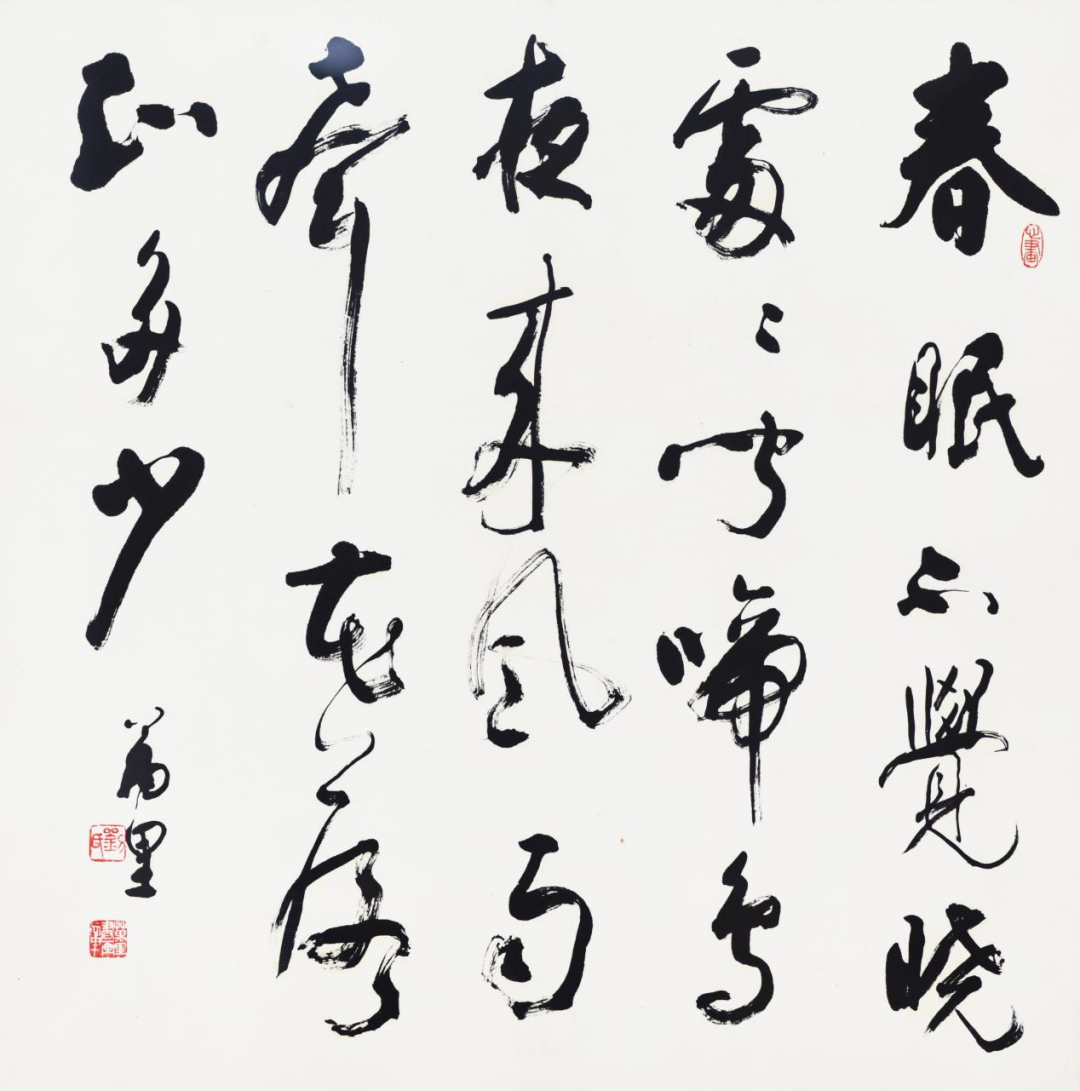 春眠不覺曉
處々聞啼鳥
夜来風雨
聲花落
知多少
萬里
劉氏